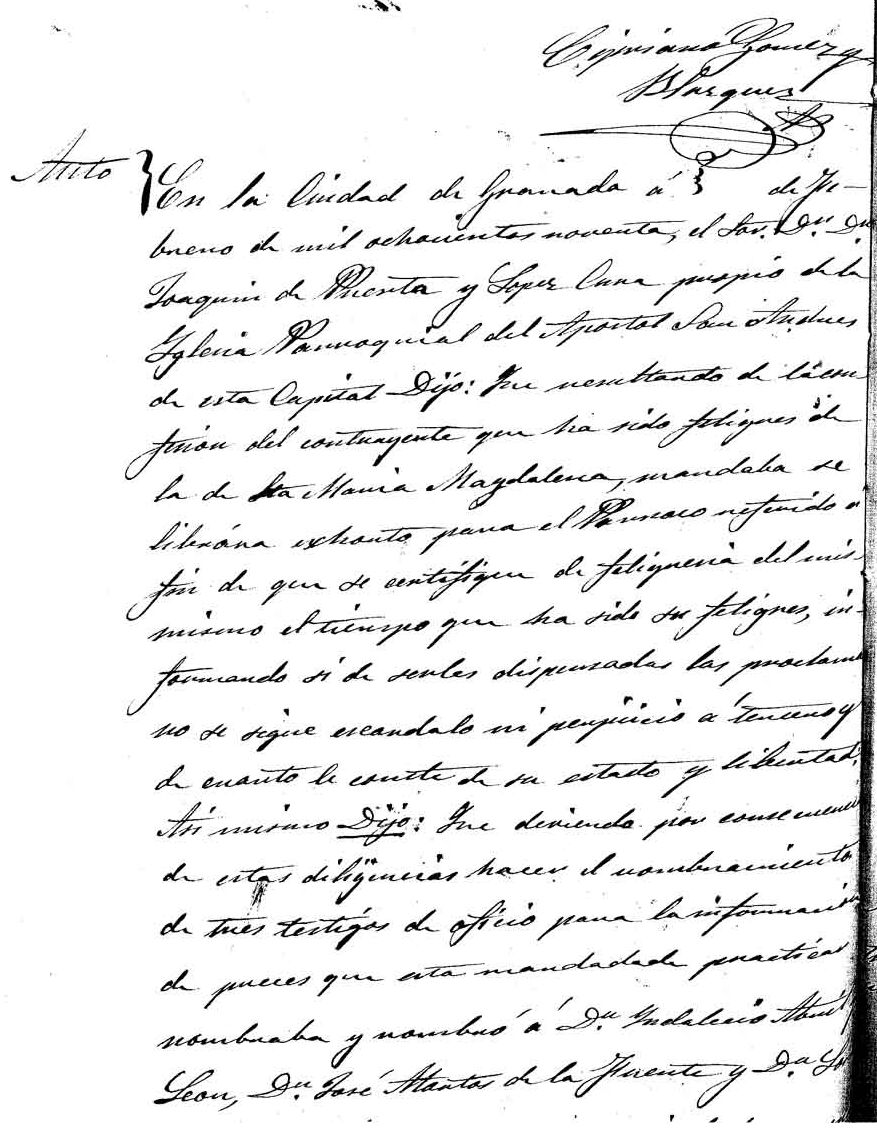 Cipriano Gomez y
Blazquez
Auto } En la Ciudad de Granada á 3 de Fe-
brero de mil ochocientos noventa, el Sor. Dn. Dn.
Joaquin de Puerta y Lopez Cura propio de la
Yglesia Parroquial del Apostol San Andres
de esta Capital Dijo: Que resultando de la con
fesion del contrayente que ha sido feligres de
la de Sta Maria Magdalena, mandaba se
librára exhorto para el Parroco referido a
fin de que se certifique de feligresia del mis-
mismo el tiempo que ha sido su feligres, in-
formando si de serles dispensadas las proclama
no se sigue escandalo ni perjuicio a tercero y
de cuanto le conste de su estado y libertad.
Asi mismo Dijo: Que deviendo por consecuenci
de estas diligencias hacer el nombramiento
de tres testigos de oficio para la informaci
de preces que esta mandada de practicar
nombraba y nombró á Dn. Yndalecio
Leon, Dn. José de la Fuente y Dn